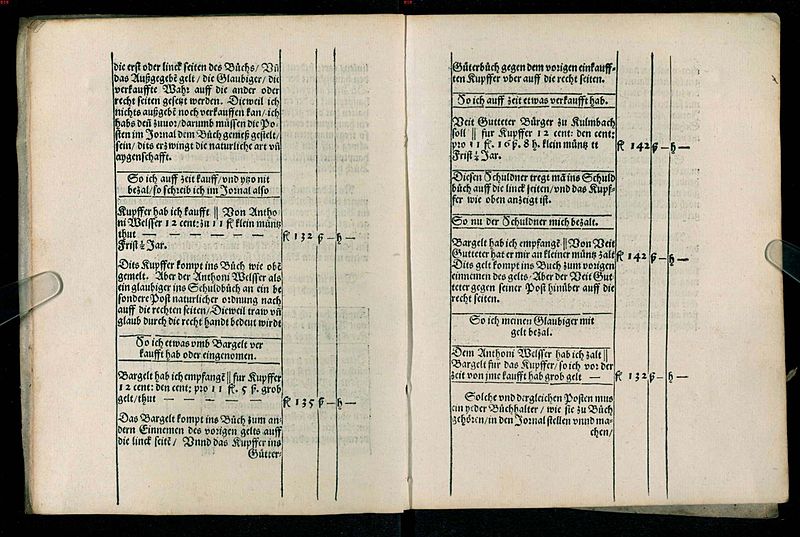 die erst oder linck seiten des Büchs/ Vñ
das Außgegebẽ gelt/ die Glaubiger/ die
verkauffte Wahr auff die ander oder
recht seiten gesetzt werden. Dieweil ich
nichts außgebẽ noch verkauffen kan/ ich
habs deñ zuuor/ darumb müssen die Po-
sten im Jornal dem Büch gemeß gestelt/
sein/ dits erzwingt die naturliche art vñ
aygenschafft.
So ich auff zeit kauff/ vnd ytzo nit
bezal/ so schreib ich im Jornal also
Kupffer hab ich kaufft || Von Antho-
ni Welsser 12 cent: zu 11 fl klein müntz
thut — — — — — — fl 132 ß — h —
Frist ¼ Jar.
Dits Kupffer kompt ins Büch wie obẽ
gemelt. Aber der Anthoni Welsser als
ein glaubiger ins Schuldbüch an ein be
sondere Post naturlicher ordnung nach
auff die rechten seiten/ Dieweil traw vñ
glaub durch die recht handt bedeut wirdt
So ich etwas vmb Bargelt ver
kaufft hab oder eingenomen.
Bargelt hab ich empfangẽ || fur Kupffer
12 cent: den cent: pro 11 fl. 5 ß. grob
gelt/ thut — — — — — fl 135 ß — h —
Das Bargelt kompt ins Büch zum an
dern Einnemen des vorigen gelts auff
die linck seitẽ/ Vnnd das Kupffer ins
Gütter-
Güterbüch gegen dem vorigen einkauff-
ten Kupffer vber auff die recht seiten.
So ich auff zeit etwas verkaufft hab.
Veit Gutteter Bürger zu Kulmbach
soll || fur Kupffer 12 cent: den cent:
pro 11 fl. 16 ß. 8 h. klein müntz tt fl 142 ß — h —
Frist ¼ Jar.
Diesen Schuldner tregt mã ins Schuld
büch auff die linck seiten/ vnd das Kupf-
fer wie oben anzeigt ist.
So nu der Schuldner mich bezalt.
Bargelt hab ich empfangẽ || Von Veit
Gutteter hat er mir an kleiner müntz zalt fl 142 ß — h —
Dits gelt kompt ins Buch zum vorigen
einnemen des gelts/ Aber der Veit Gut
teter gegen seiner Post hinüber auff die
recht seiten.
So ich meinen Glaubiger mit
gelt bezal.
Dem Anthoni Welsser hab ich zalt ||
Bargelt fur das Kupffer/ so ich vor der
zeit von jme kaufft hab grob gelt — fl 132 ß — h —
Solche vnd dergleichen Posten mus
ein yeder Büchhalter/ wie sie zu Büch
gehören/ in den Jornal stellen vnnd ma-
chen/